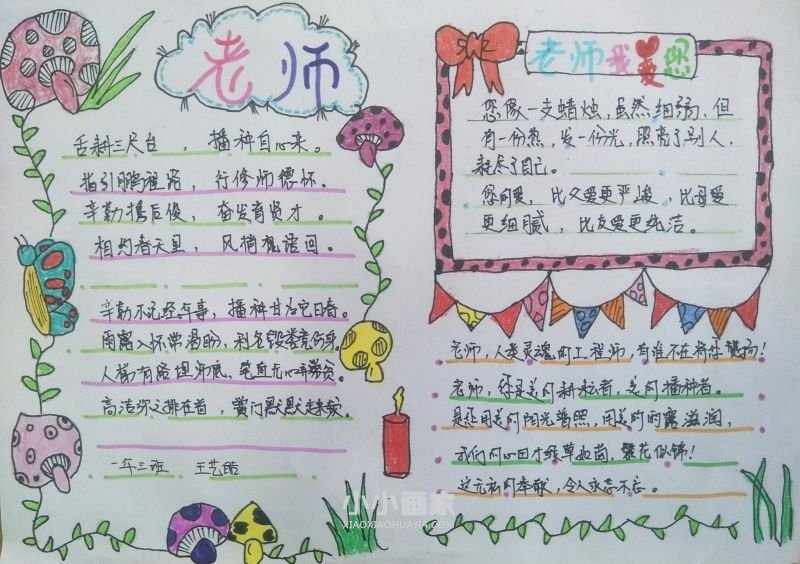 老师
舌耕三尺台，播种自心来。
指引鹏程路，行修师德怀。
辛勤携后俊，奋发育贤才。
相约春天里，风梢桃语回。
辛勤不记经年事，播种甘
雨露入怀常渴盼，利名毁誉竟
人梯有
高洁 排在首，门默默
一年三班 王艺皓
老师我爱您
您像一支蜡烛，虽然细弱，但
有一份热，发一份光，照亮了别人，
耗尽了自己。
您的爱，比父爱更严峻，比母爱
更细腻，比友爱更纯洁。
老师，人类灵魂的工程师，有谁不在将你赞扬！
老师，您是美的耕耘者，美的播种者。
是您用美的阳光普照，用美的雨露滋润，
我们的心田才绿草如茵，繁花似锦！
这无私的奉献，令人永志不忘。
小小画家
XIAOXIAOHUAJIA.COM